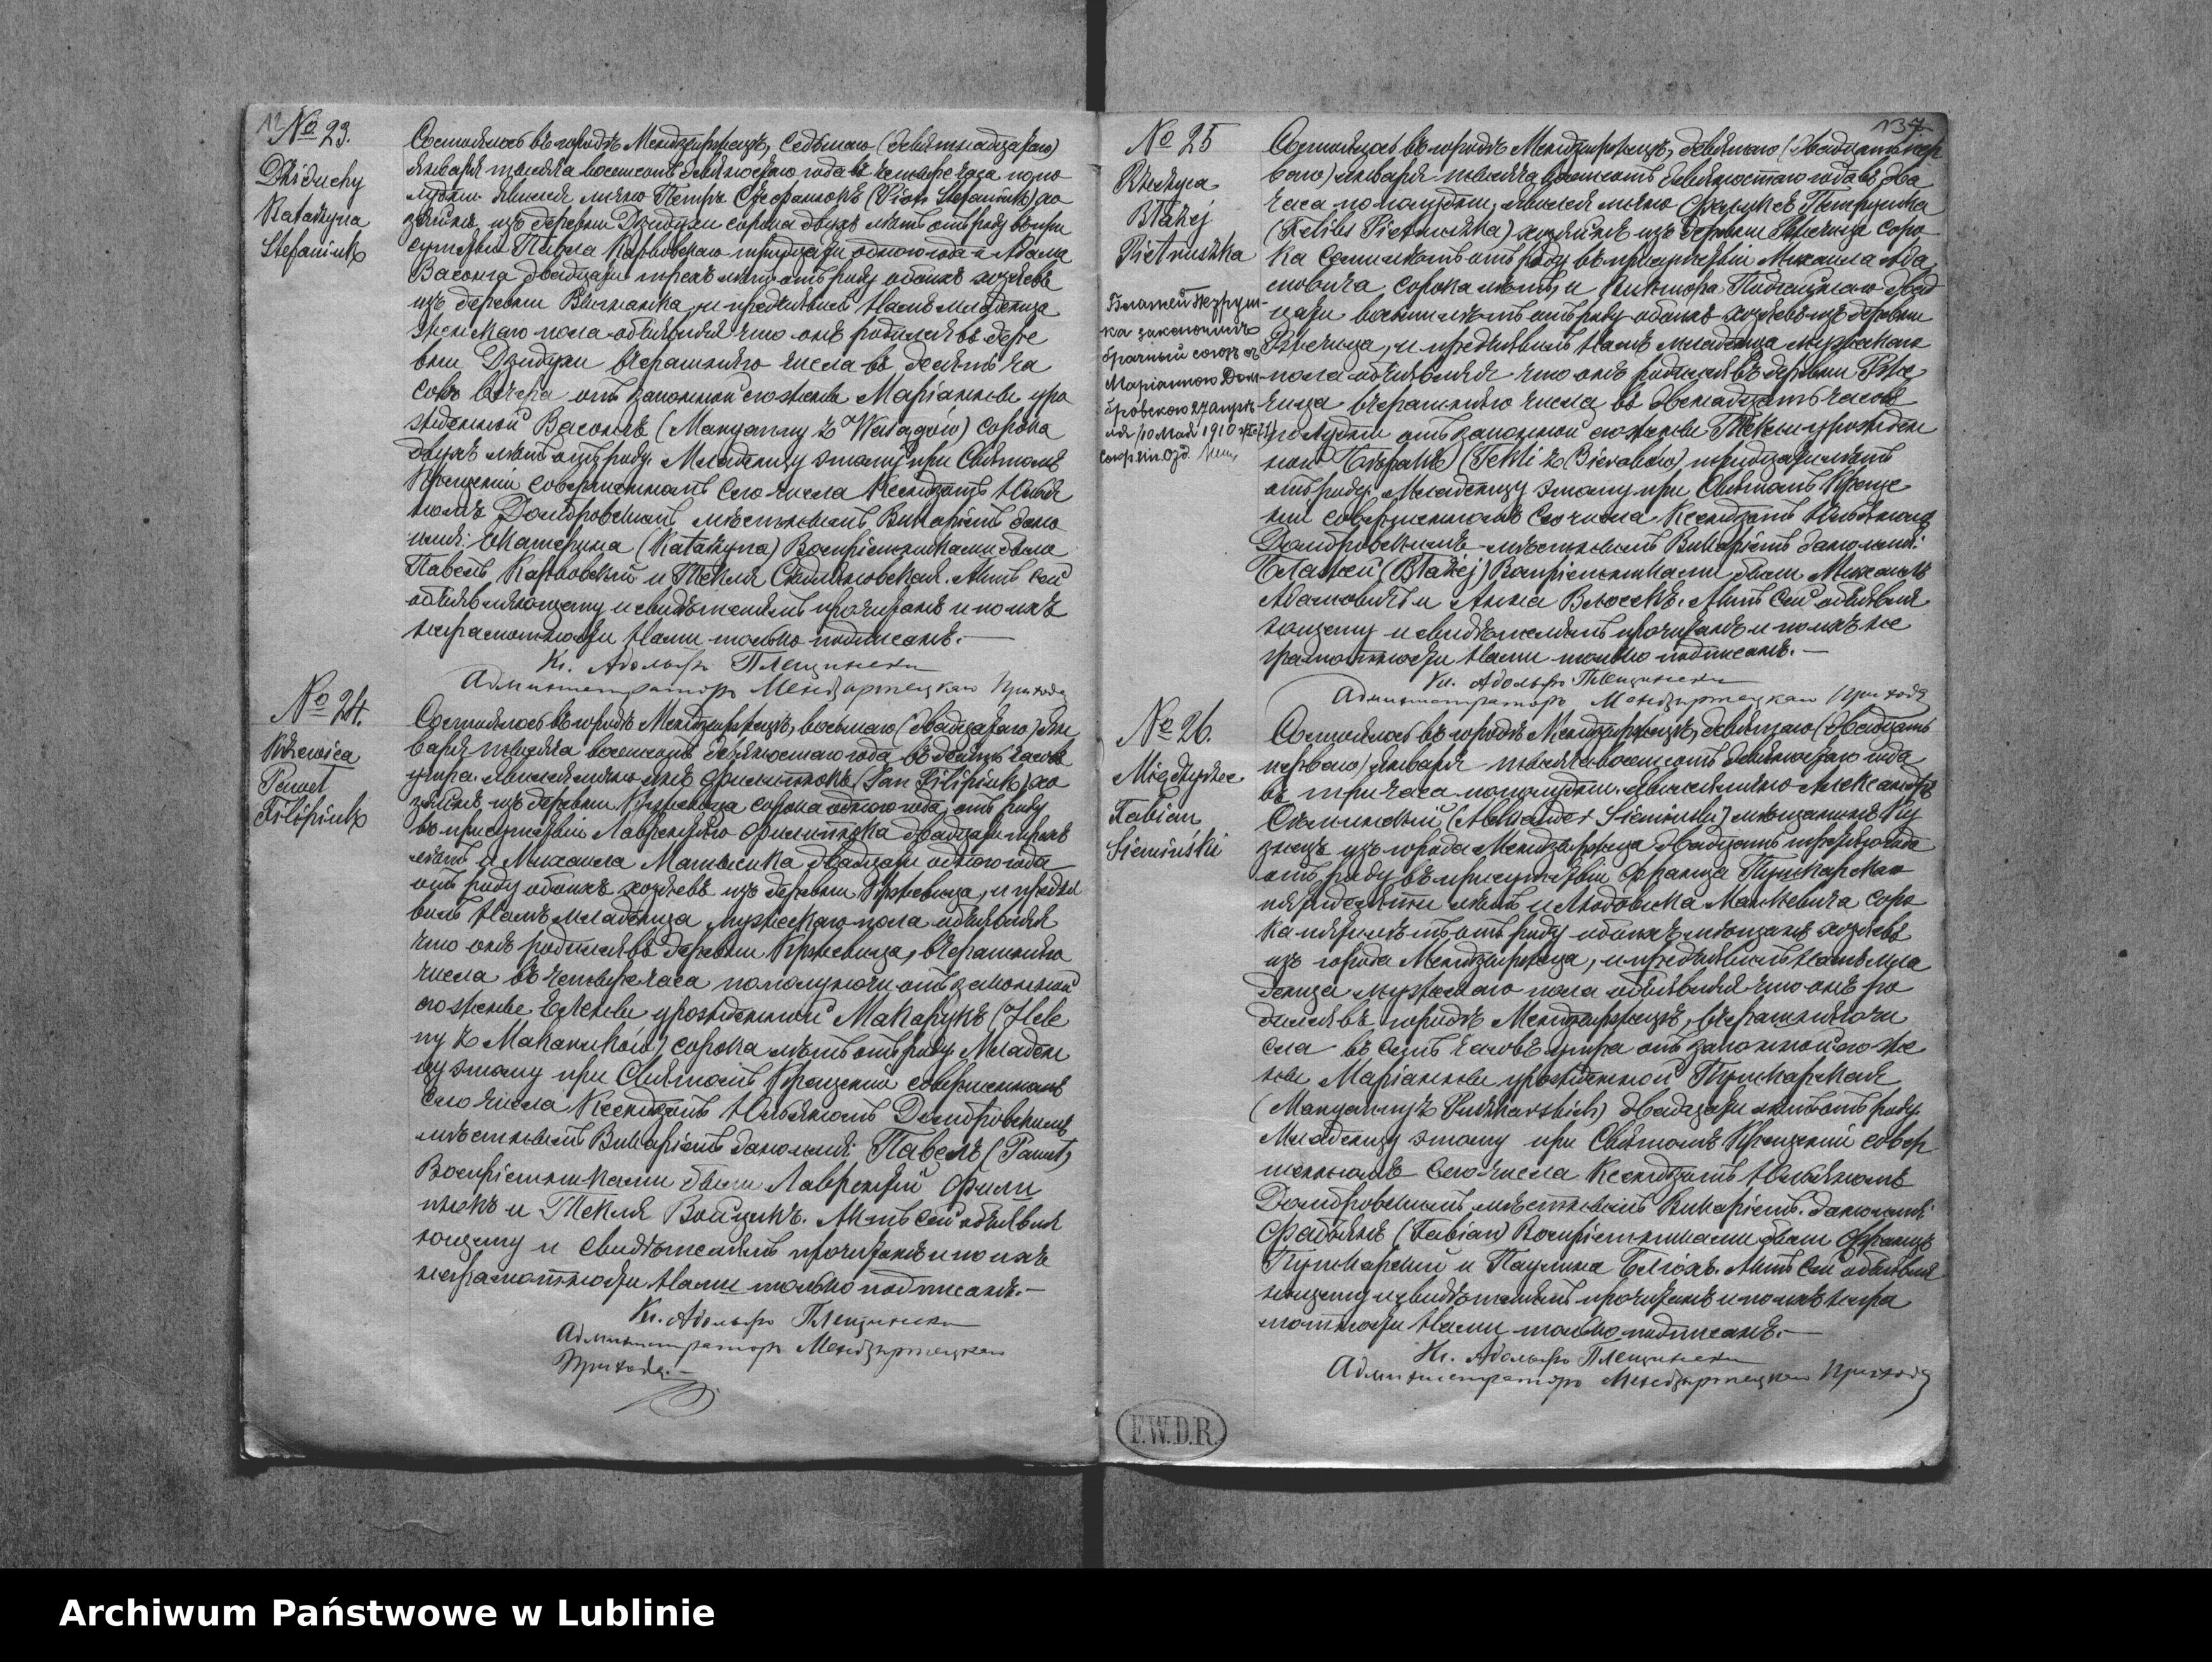 12
№ 23.
Dziduchy
Katarzyna
Stefaniuk
Состоялось въ городѣ Мендзиржецѣ, седьмаго (девятнадцатаго)
января тысяча восемьсотъ девяностаго года въ четыре часа попо
лудни. Явился лично Петръ Стефанюкъ (Piotr Stefaniuk) хо
зяинъ изъ деревни Дзидухи сорока двухъ лѣтъ отъ роду въ при
сутствіи Павла Карповскаго тридцати одного года и Адама
Васонга двадцати трехъ лѣтъ отъ роду обоихъ хозяевъ
изъ деревни и предъявилъ Намъ младенца
женскаго пола объявляя что онъ родился въ дере
вни Дзидухи вчерашняго числа въ десять ча
совъ вечера отъ законной его жены Маріанны уро
жденной Васонгъ (Maryanny z Wasągów) сорока
двухъ лѣтъ отъ роду. Младенцу этому при Святомъ
Крещеніи совершенномъ сего числа Ксендзомъ Юльян
номъ Домбровскимъ мѣстнымъ Викаріемъ дано
имя: Екатерина (Katarzyna) Воспріемниками были
Павелъ Карповскій и Текля Актъ сей
объявляющему и свидѣтелямъ прочитанъ и по ихъ
неграмотности Нами только подписанъ.—
Кс. Адольфъ Плещински
Администраторъ Мендзыржецкаго Прихода
№ 24.
Krzewica
Paweł
Filipiuk
Состоялось въ городѣ Мендзиржецѣ, восьмаго (двадцатаго) Ян
варя тысяча восемьсотъ девяностаго года въ десять часовъ
утра. Явился лично Янъ Филипюкъ (Jan Filipiuk) хо
зяинъ изъ деревни Кржевица, сорока одного года отъ роду
въ присутствіи Лаврентія Филипюка двадцати трехъ
лѣтъ и Михаила двадцати одного года
отъ роду обоихъ хозяевъ изъ деревни Кржевица, и предъя
вилъ Намъ младенца мужескаго пола объявляя
что онъ родился въ деревни Кржевица, вчерашняго
числа въ четыре часа пополуночи отъ законной
его жены Елены урожденной Макарукъ (Hele
ny z Makaruków) сорока лѣтъ отъ роду. Младен
цу этому при Святомъ Крещеніи совершенномъ
сего числа Ксендзомъ Юльяномъ Домбровскимъ
мѣстнымъ Викаріемъ дано имя: Павелъ (Paweł)
Воспріемниками были Лаврентій Фили
пюкъ и Текля Войцукъ. Актъ сей объявля
ющему и свидѣтелямъ прочитанъ и по ихъ
неграмотности Нами только подписанъ.—
Кс. Адольфъ Плещински
Администраторъ Мендзыржецкаго
Прихода.—
137
№ 25
Rzeczyca
Błażej
Pietruszka
Блажей Петруш-
ка заключилъ
брачный союзъ съ
Маріанною Дом-
бровскою 27 Апрѣ-
ля/10 Мая 1910
Состоялось въ городѣ Мендзиржецѣ, девятаго (двадцать пер
ваго) января тысяча восемьсотъ девяностаго года въ два
часа по полудни, явился лично Феликсъ Петрушка
(Feliks Pietruszka) хозяинъ изъ деревни Ржечица соро
ка семи лѣтъ отъ роду въ присутствіи Михаила Ада
мовича, сорока лѣтъ, и Виктора двад
цати восьми лѣтъ отъ роду обоихъ хозяевъ изъ деревни
Ржечица, и предъявилъ Намъ младенца мужескаго
пола объявляя что онъ родился въ деревни Рже
чица вчерашняго числа въ двенадцать часовъ
по полудни отъ законной его жены Текли урожден
ной (Tekli z ) тридцати лѣтъ
отъ роду. Младенцу этому при Святомъ Креще
ніи совершенномъ сего числа Ксендзомъ Юльяномъ
Домбровскимъ мѣстнымъ Викаріемъ дано имя:
Блажей (Błażej) Воспріемниками были Михаилъ
Адамовичъ и Анна Власюкъ. Актъ сей объявля
ющему и свидѣтелямъ прочитанъ и по ихъ не
грамотности Нами только подписанъ.—
Кс. Адольфъ Плещински
Администраторъ Мендзыржецкаго Прихода
№ 26.
Międzyrzec
Fabian
Siemiński
Состоялось въ городѣ Мендзиржецѣ, девятаго (двадцать
перваго) января тысяча восемьсотъ девяностаго года
въ три часа пополудни. Явился лично Александръ
Сѣминскій (Aleksander Siemiński) мѣщанинъ Ку
знецъ изъ города Мендзиржеца двадцать третьяго года
отъ роду въ присутствіи Франца Пушкарскаго
пятидесяти лѣтъ и Людовика Манкевича соро
ка пяти лѣтъ отъ роду обоихъ мѣщанъ хозяевъ
изъ города Мендзиржеца, и предъявилъ Намъ мла
денца мужескаго пола объявляя что онъ ро
дился въ городѣ Мендзиржецѣ, вчерашняго чи
сла въ семь часовъ утра отъ законной его же
ны Маріанны урожденной Пушкарская
(Maryanny z Puszkarskich) двадцати лѣтъ отъ роду.
Младенцу этому при Святомъ Крещеніи совер
шенномъ сего числа Ксендзомъ Юльяномъ
Домбровскимъ, мѣстнымъ Викаріемъ. дано имя:
Фабьянъ (Fabian) Воспріемниками были Францъ
Пушкарскій и Паулина Актъ сей объявля
ющему и свидѣтелямъ прочитанъ и по ихъ негра
мотности Нами только подписанъ.—
Кс. Адольфъ Плещински
Администраторъ Мендзыржецкаго Прихода
F.W.D.R.
Archiwum Państwowe w Lublinie